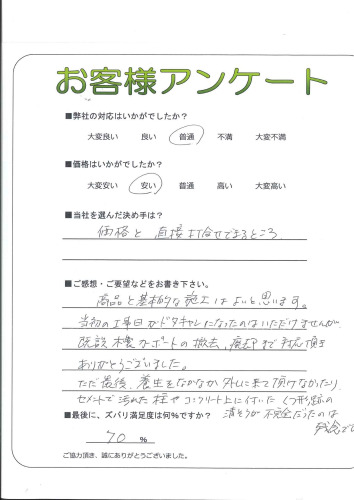 お客様アンケート
■弊社の対応はいかがでしたか？
大変良い 良い 普通 不満 大変不満
■価格はいかがでしたか？
大変安い 安い 普通 高い 大変高い
■当社を選んだ決め手は？
価格と 直接打合せできるところ
■ご感想・ご要望などをお書き下さい。
商品と基本的な施工はよいと思います。
当初の工事日がドタキャンになったのはいただけませんが、
既設木製カーポートの撤去、廃却まで対応頂き
ありがとうございました。
ただ最後、養生をなかなか外しに来て頂けなかったり、
セメントで汚れた柱やコンクリート上に付いたくつ形跡の
清そうが不完全だったのは
残念で
■最後に、ズバリ満足度は何％ですか？
70 ％
ご協力頂き、誠にありがとうございました。